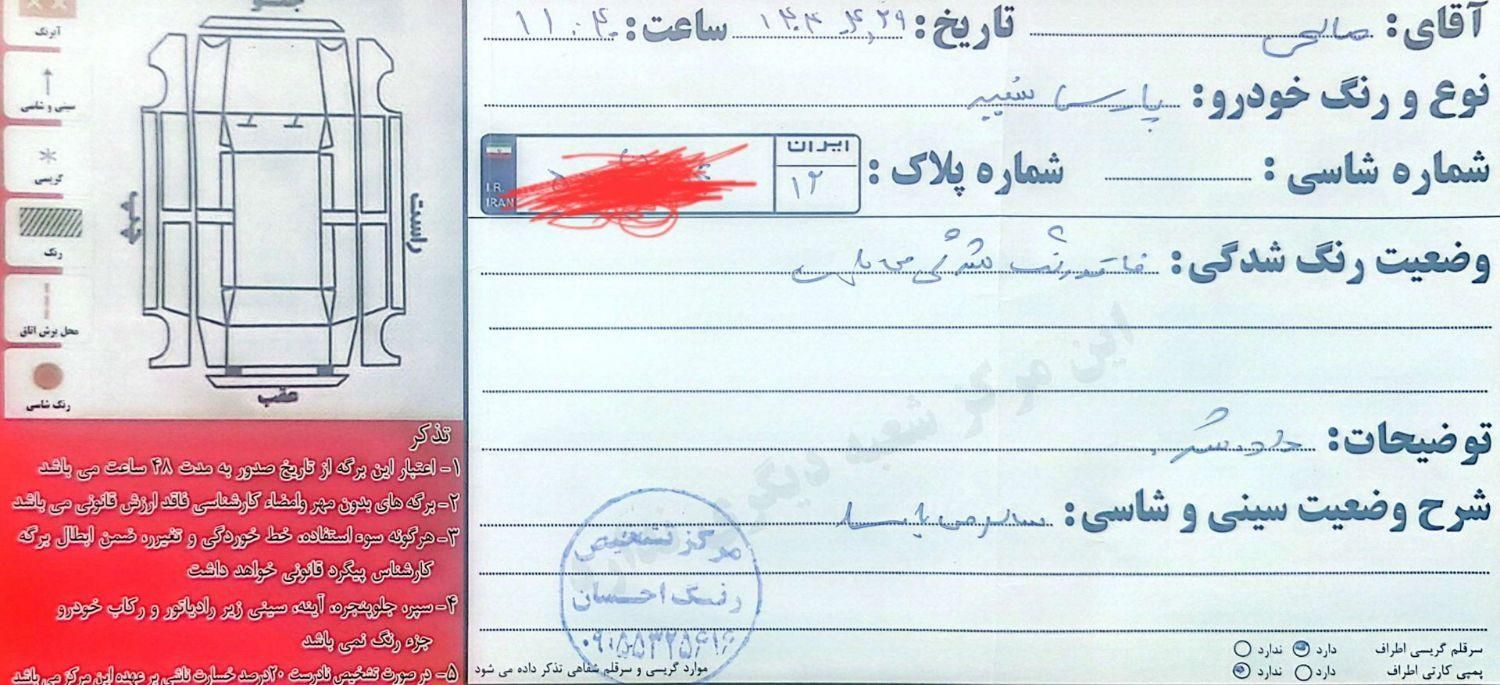 آقای: صالحی تاریخ: ۱۴۰۳,۴,۲۹ ساعت: ۱۱:۴۰
نوع و رنگ خودرو: پارس سفید
شماره شاسی: شماره پلاک: ایران ۱۲
I.R.
IRAN
وضعیت رنگ شدگی: فاقد رنگ شدگی می باشد
توضیحات: داده شد
شرح وضعیت سینی و شاسی: سالم می باشد
این مرکز شعبه دیگری ندارد
مرکز تشخیص
رنگ احسان
۰۹۰۵۵۳۲۵۶۱۶
سرقلم گریسی اطراف دارد ندارد
پمپی کارتی اطراف دارد ندارد
موارد گریسی و سرقلم شفاهی تذکر داده می شود
آبرنگ
سینی و شاسی
گریسی
رنگ
محل برش اتاق
رنگ شاسی
جلو
راست
چپ
عقب
تذکر
۱- اعتبار این برگه از تاریخ صدور به مدت ۴۸ ساعت می باشد
۲- برگه های بدون مهر وامضاء کارشناسی فاقد ارزش قانونی می باشد
۳- هرگونه سوء استفاده، خط خوردگی و تغیرر، ضمن ابطال برگه
کارشناس پیگرد قانونی خواهد داشت
۴- سپر، جلوپنجره، آینه، سینی زیر رادیاتور و رکاب خودرو
جزء رنگ نمی باشد
۵- در صورت تشخیص نادرست ۲۰درصد خسارت ناشی بر عهده این مرکز می باشد